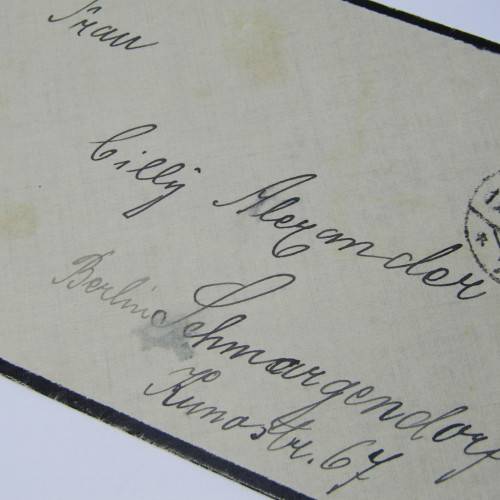 Frau
Cilly Alexander
Berlin Schmargendorf
Kunostr. 67